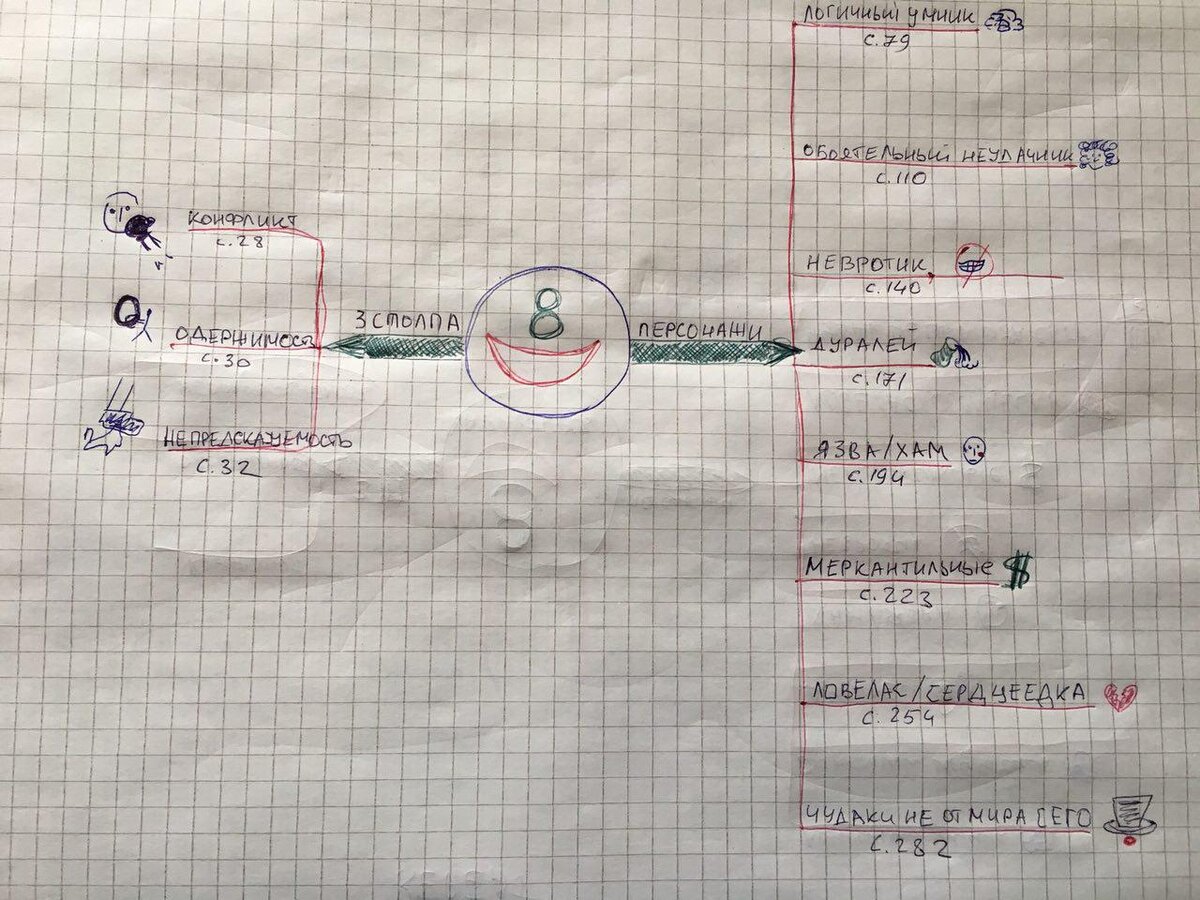 ЛОГИЧНЫЙ УМНИК
с.79
ОБОЯТЕЛЬНЫЙ НЕУДАЧНИК
с.110
КОНФЛИКТ
с.28
НЕВРОТИК
с.140
8
3 СТОЛПА
ПЕРСОНАЖИ
ОДЕРЖИМОСТЬ
с.30
ДУРАЛЕЙ
с.171
НЕПРЕДСКАЗУЕМОСТЬ
с.32
ЯЗВА/ХАМ
с.194
МЕРКАНТИЛЬНЫЕ $
с.223
ЛОВЕЛАС/СЕРДЦЕЕДКА
с.254
ЧУДАКИ НЕ ОТ МИРА СЕГО
с.282